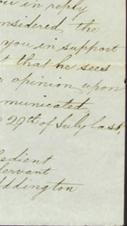 in reply
onsidered the
you in support
t that he sees
opinion upon
municated
29th of July last,
edient
ervant
ddington